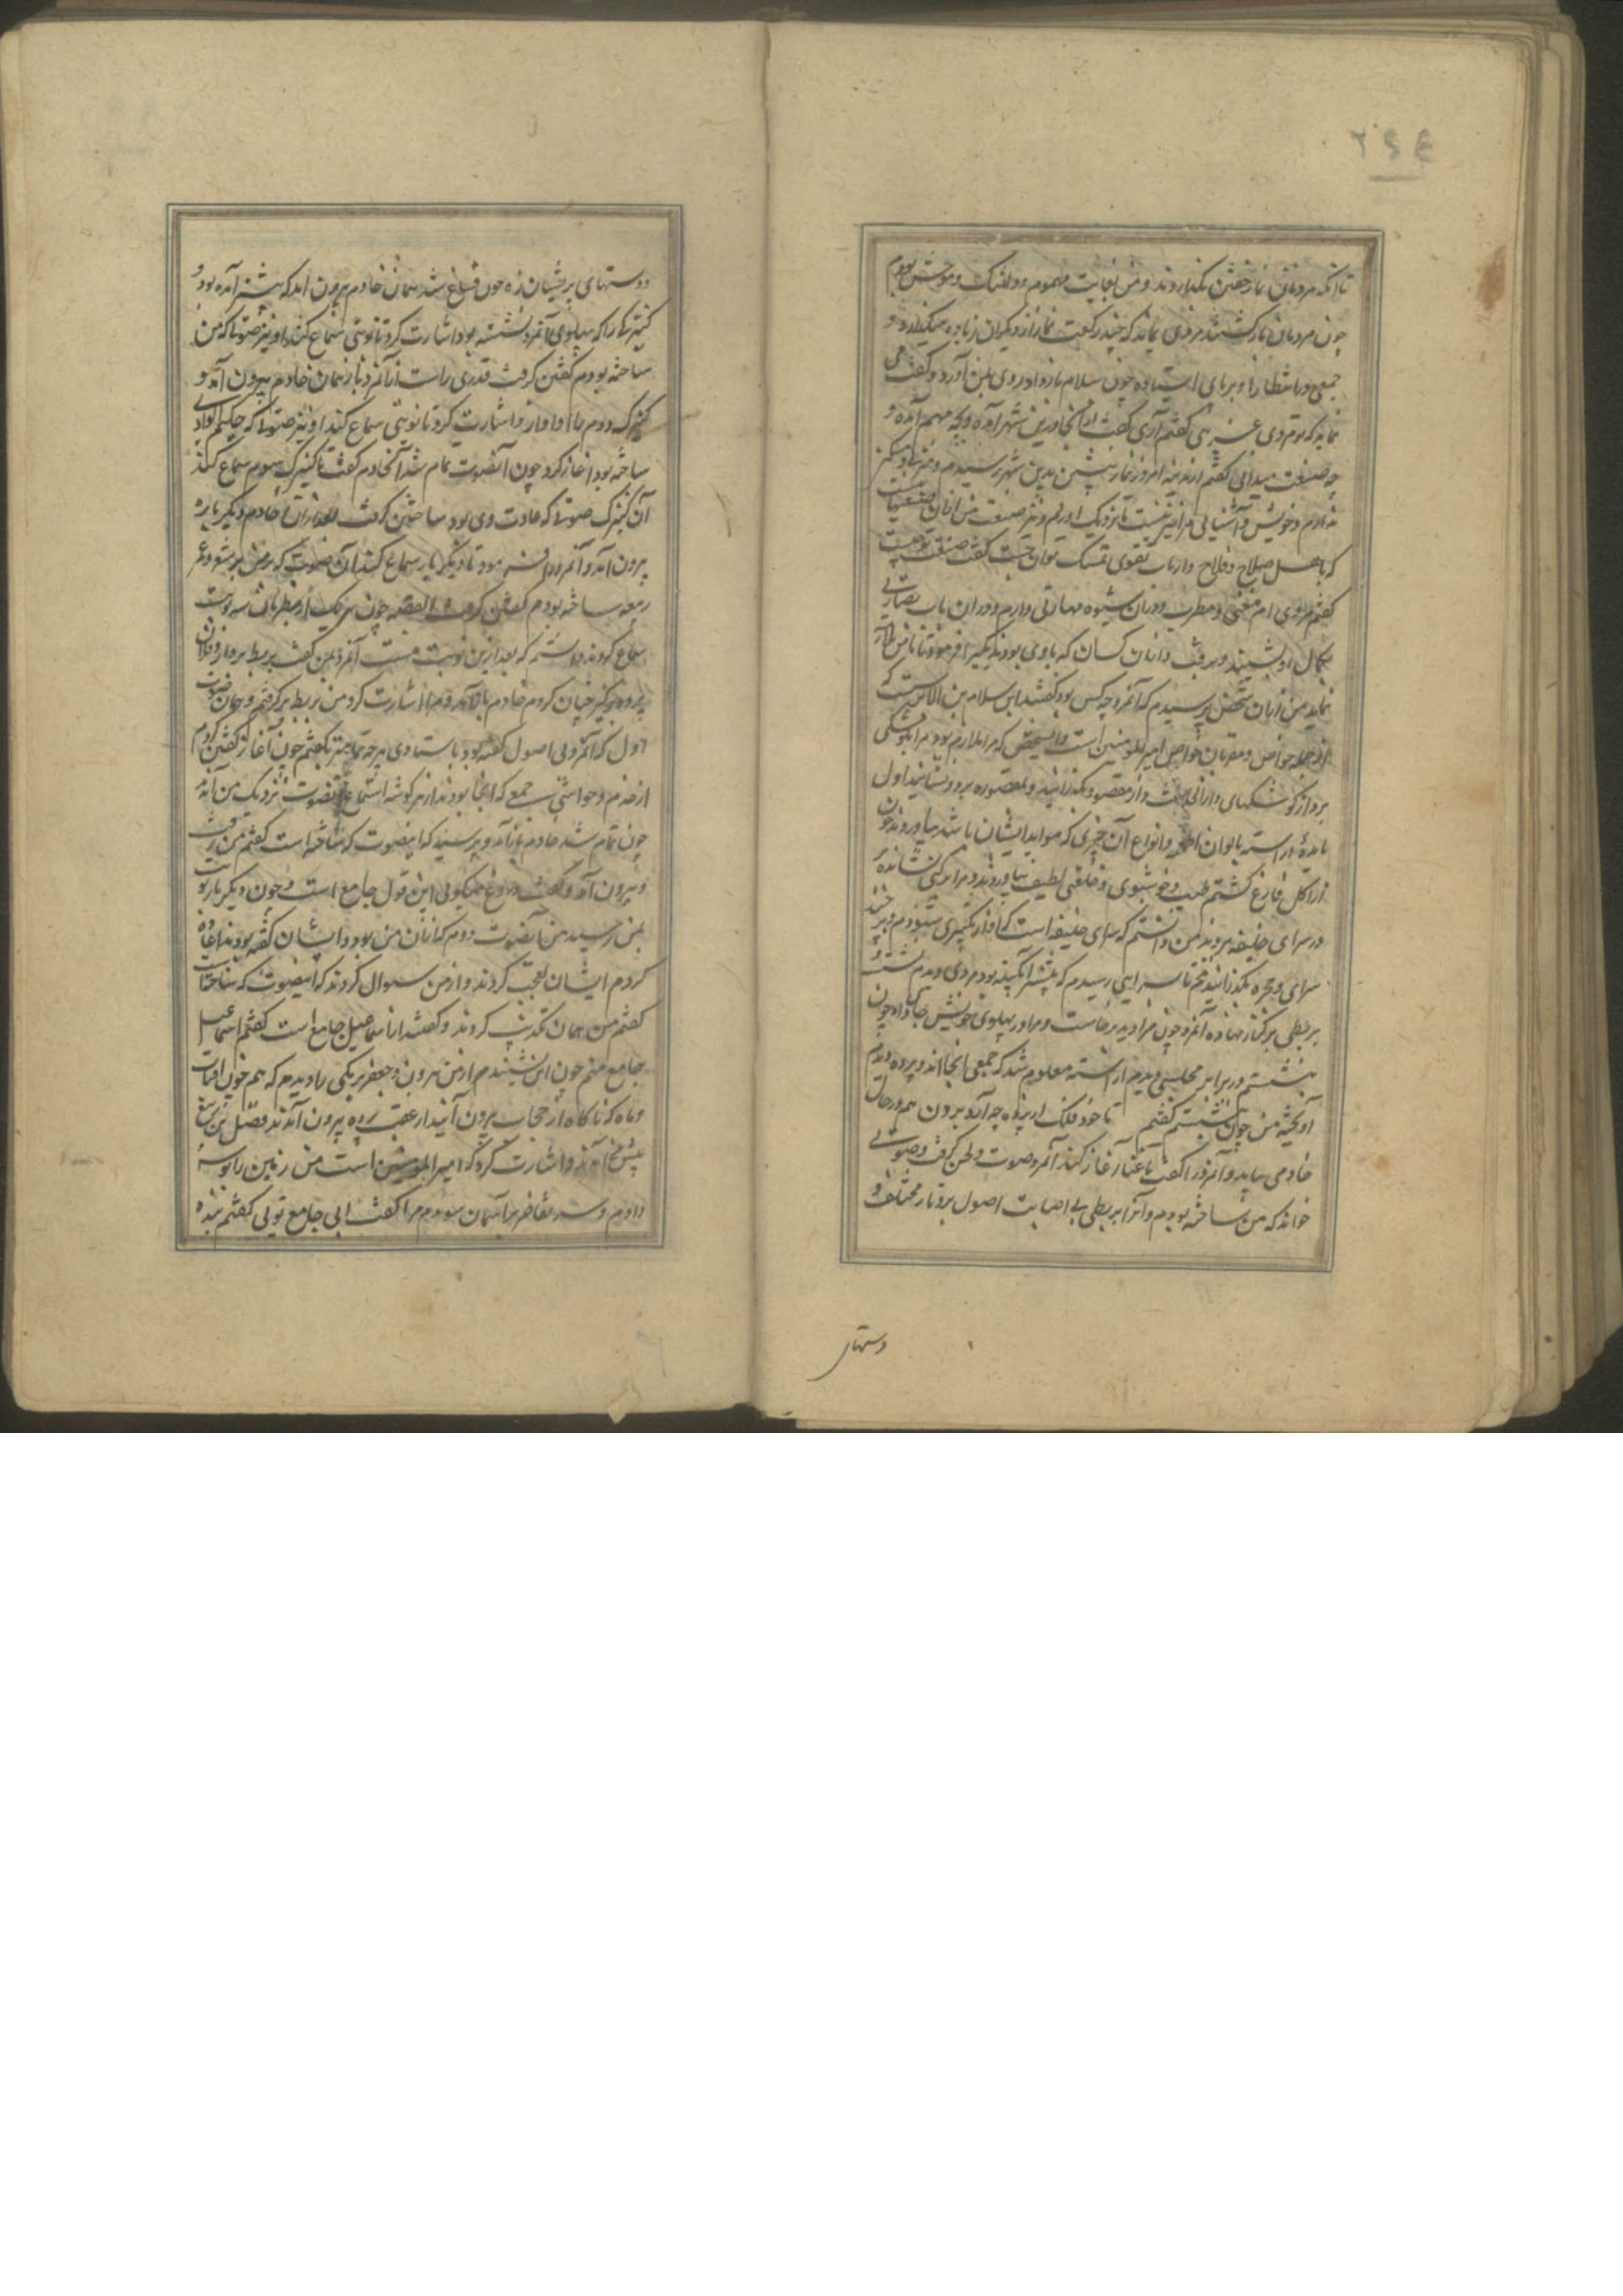 ۲۶۴
تا آنکه مردمان نماز خفتن بگذاردند و من بغایت مهموم و دلتنک و متوحش بودم
چون مردمان بازکشتند مردی بماند که چند رکعت نماز از دیکران زیاده میکذارد و
جمعی در انتظار او بر پای ایستاده چون سلام باز داد روی بمن آورد و گفت می
نماید که تو مردی غریبی گفتم آری گفت کی درین شهر آمده و بچه مهم آمده و
چه صنعت میدانی گفتم از مدینه امروز نماز پیشین بدین شهر رسیدم و منزل و مسکن
ندارم و خویش و آشنایی مرا نیز نیست تا نزدیک او روم و نیز صنعت من از آن صنعتها نیست
که باهل صلاح و فلاح و ارباب تقوی تمسک توان جست گفت صنعت تو چیست
گفتم مردی ام مغنی و مطرب و در آن شیوه مهارتی دارم و در آن باب بصارتی
بکمال او بشنید و برفت و از آن کسان که با وی بودند یکی را فرمود تا با من
نماید من از آن شخص پرسیدم که آنمرد چه کس بود گفتند این سلام بن الابرش است که
از جمله خواص و مقربان خواص امیر المؤمنین است و آنشخص که مرا ملازم بود مرا بکوشکی
برد از کوشکهای دار الخلافت و از مقصوره بکذرانید و بمقصوره برد و بنشانید اول
مایدهٔ آراسته بالوان اطعمه و انواع آن چیزی که مواید ایشان باشد بیاوردند چون
از اکل فارغ کشتم طیب و خوشبوی و خلعتی لطیف بیاوردند و مرا بر مرکبی نشانده
در سرای خلیفه بردند من دانستم که سرای خلیفه است که آواز تکبیری شنودم و بر چند
سرای و حجره بکذرانیدندم تا بسرایی رسیدم که پیشتر آنجا بودم مردی دیدم نشسته
بربطی بر کنار نهاده آنمرد چون مرا دید برخاست و مرا در پهلوی خویش جای داد چون
بنشستم در برابر مجلسی دیدم آراسته معلوم شد که جمعی اینجا اند و پرده دیدم
آویخته من چون بنشستم گفتم تا خود فلک از پرده چه آرد برون هم در حال
خادمی بیامد و آنمرد را گفت تا غنا آغاز کند آنمرد صوت و لحن گرفت و صوتی
خواند که من ساخته بودم و آنرا بر بطی بی اصابت اصول بر اوتار مختلف و
دستهای
دوستهای پریشان زه چون فارغ شد همان خادم بیرون آمد که پیشتر آمده بود و
کنیزکی را که پهلوی آنمرد نشسته بود اشارت کرد تا نوبتی سماع کند او نیز صوتی که من
ساخته بودم گفتن گرفت قدری راست تر از آنمرد باز همان خادم بیرون آمد و
کنیزک دوم را آواز داد و اشارت کرد تا نوبتی سماع کند او نیز صوتی که حکم الوادی
ساخته بود آغاز کرد چون آنصوت تمام شد آنخادم گفت تا کنیزک سوم سماع کند
آن کنیزک صوتی که عادت وی بود ساختن گرفت بعد از آن خادم دیگر باره
بیرون آمد و آنمرد را فرمود تا دیگر بار سماع کند آن صوت که
ساخته بودم گفتن گرفت القصه چون هر یک از مطربان سه نوبت
سماع کردند دانستم که بعد ازین نوبت منست آنمرد بمن گفت بربط بردار و فلان
پرده برگیر چنان کردم خادم باز آمد و مرا اشارت کرد من بربط برگرفتم و همان صوت
اول که آنمرد بی اصول گفته بود باستادی هر چه تمامتر بگفتم چون آغاز گفتن کردم
از خدم و حواشی جمع که آنجا بودند از هر گوشه استماع آنصوت نزدیک من آمده
چون تمام شد خادم باز آمد و پرسید که این صوت که ساخته است گفتم من رفت
و بیرون آمد و گفت دروغ میگویی این قول جامع است و چون دیگر بار نوبت
بمن رسید من آنصوت دوم که از آن من بود و ایشان گفته بودند اعاده
کردم ایشان تعجب کردند و از من سوال کردند که این صوت که ساخته است
گفتم من همان تکذیب کردند و گفتند از آن اسمعیل جامع است گفتم اسماعیل
جامع منم چون این شنیدم از من هرون و جعفر برمکی را دیدم که هم چون آفتاب
و ماه که ناگاه از حجاب بیرون آیند از عقب پرده بیرون آمدند فضل بن ربیع
پیش من آمد و اشارت کرد که امیر المؤمنین است من زمین را بوسه
دادم و سر تفاخر بآسمان سودم مرا گفت ابن جامع تویی گفتم بنده